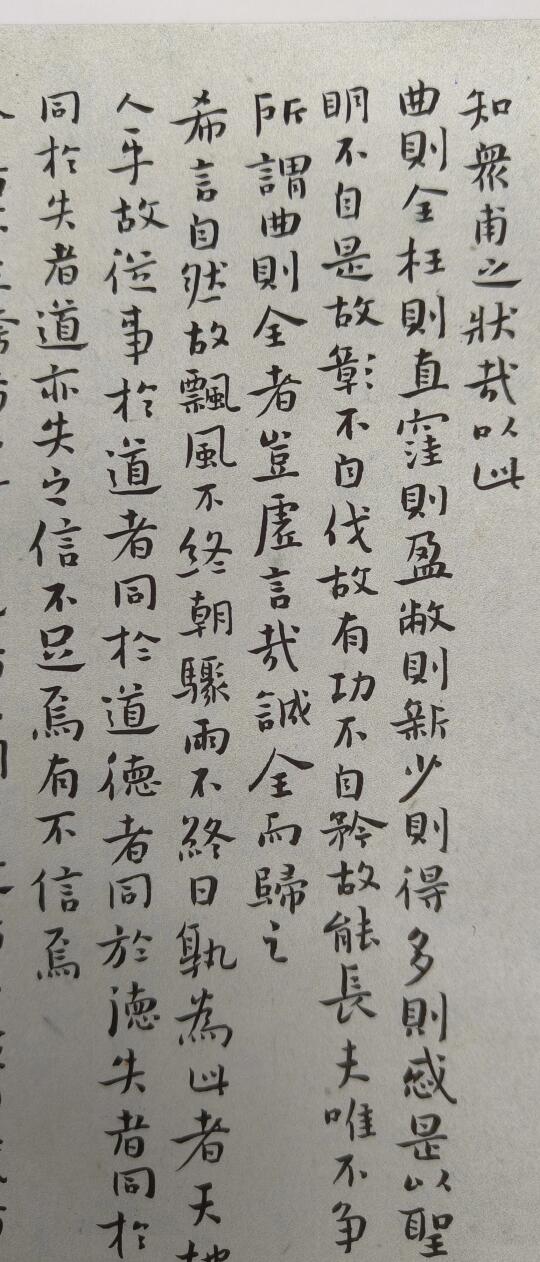 知衆甫之狀哉以此
曲則全枉則直窪則盈敝則新少則得多則惑是以聖
明不自是故彰不自伐故有功不自矜故能長夫唯不争
所謂曲則全者豈虛言哉誠全而歸之
希言自然故飄風不終朝驟雨不終日孰為此者天地
人乎故從事於道者同於道德者同於德失者同於
同於失者道亦失之信不足焉有不信焉